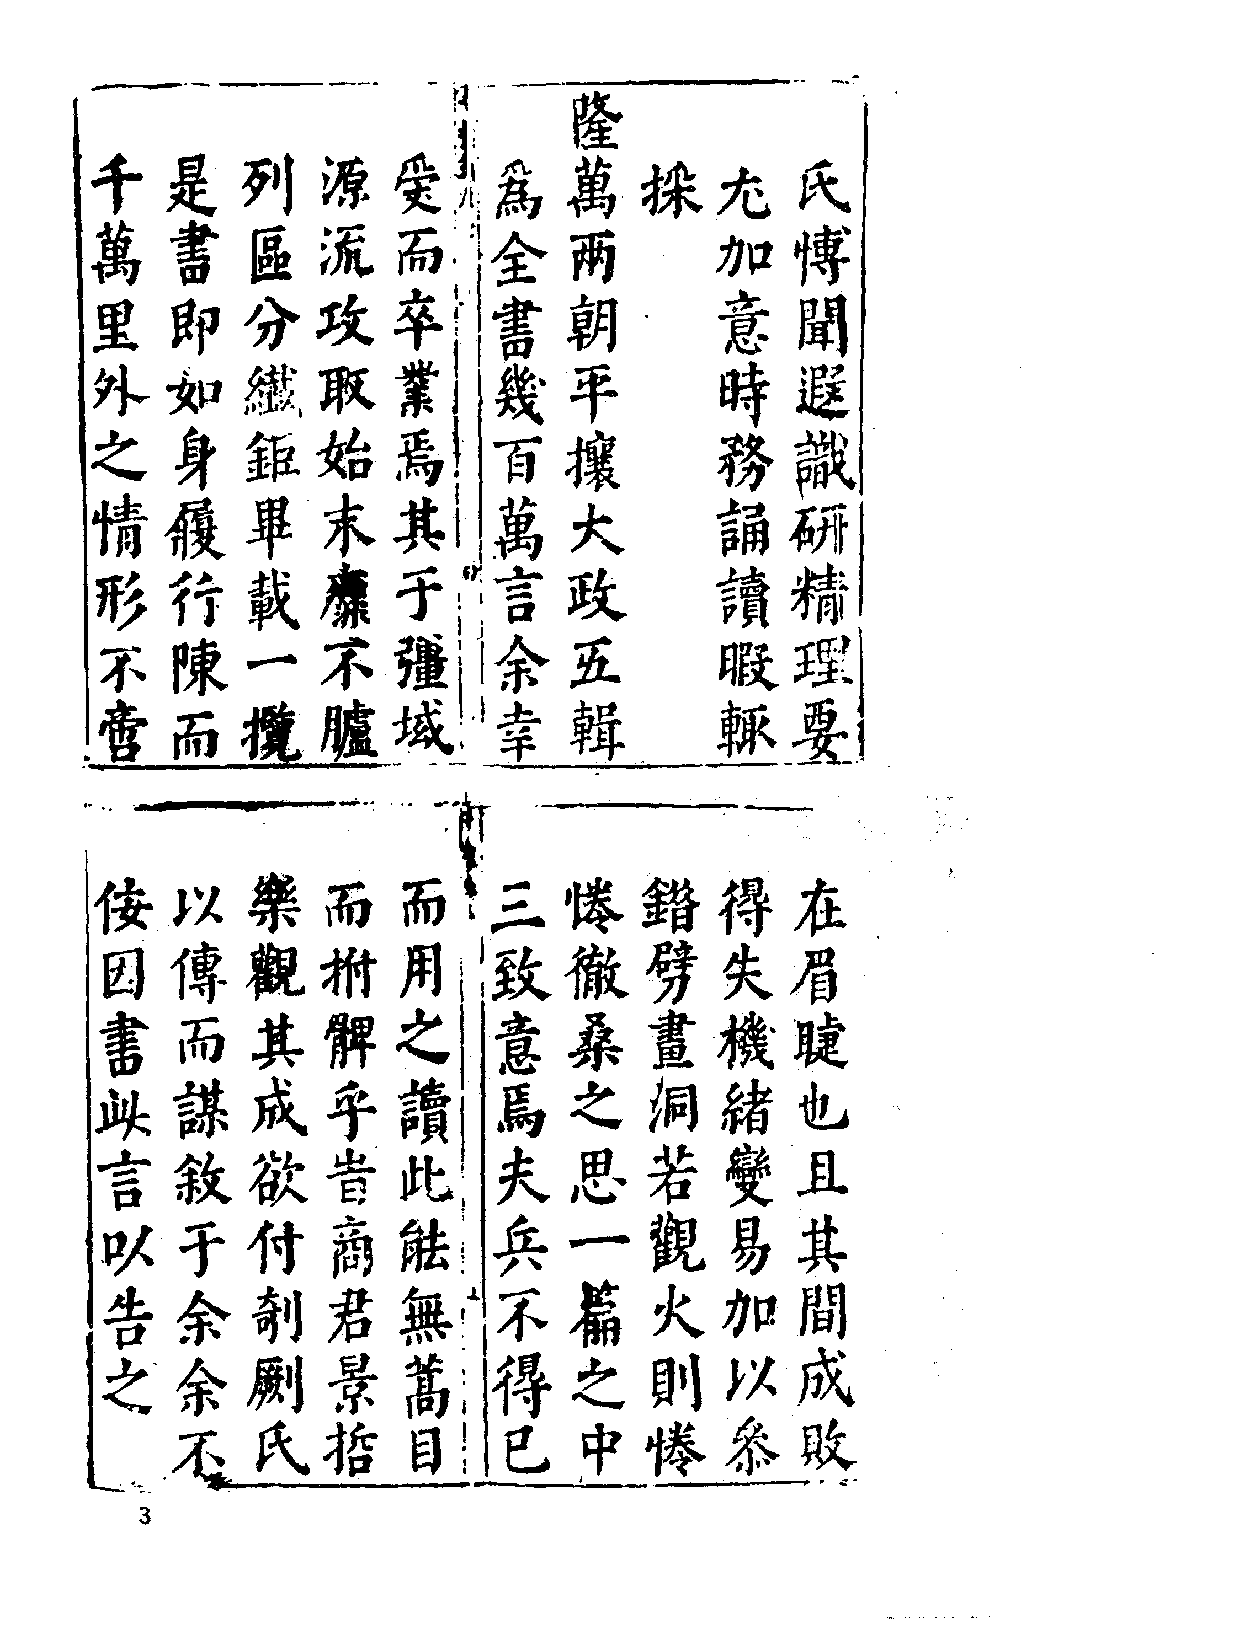 氏愽聞遐識研精理要
尢加意時務誦讀暇輙
採
隆萬兩朝平攘大政五輯
為全書幾百萬言余幸
受而卒業焉其于彊域
源流攻取始末靡不臚
列區分纖鉅畢載一攬
是書即如身履行陳而
千萬里外之情形不啻
在眉睫也且其間成敗
得失機緒變易加以叅
錯劈畫洞若觀火則惓
惓徹桑之思一篇之中
三致意焉夫兵不得已
而用之讀此能無蒿目
而拊髀乎昔商君景哲
樂觀其成欲付剞劂氏
以傳而謀敘于余余不
佞因書此言以告之
3